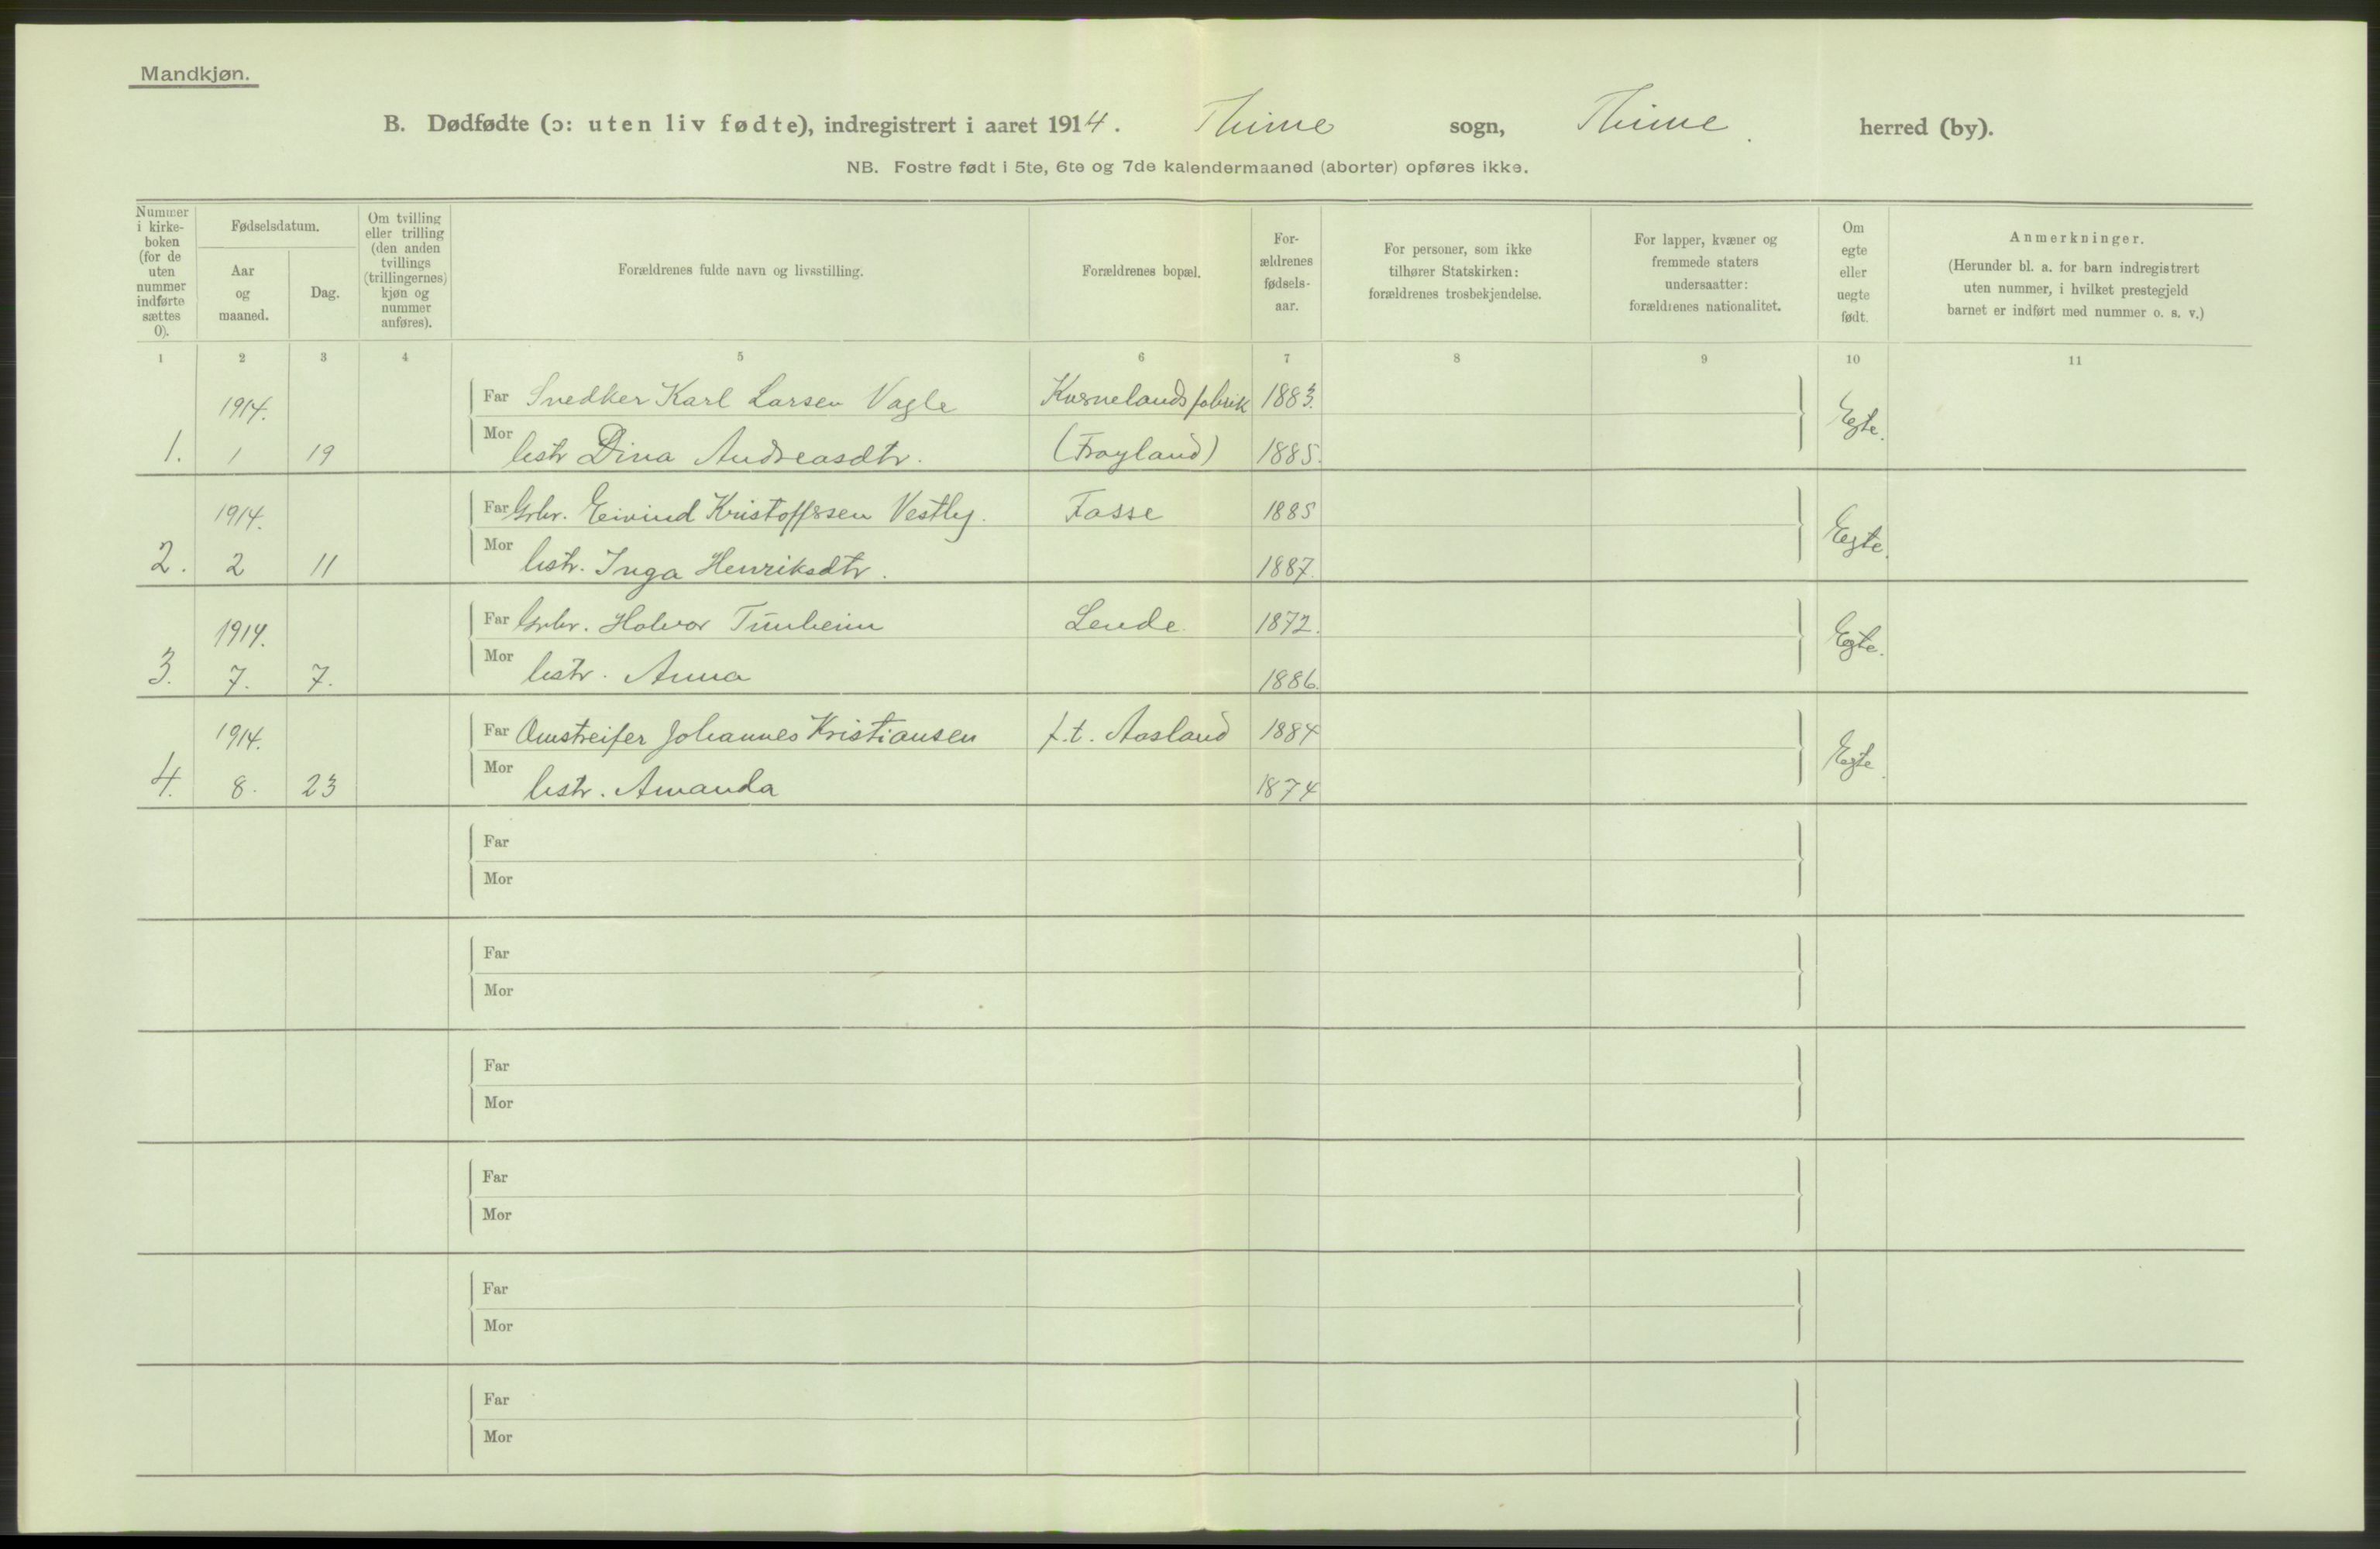 Mandkjøn.
B. Dødfødte (ɔ: uten liv fødte), indregistrert i aaret 1914. Thime sogn, Thime. herred (by).
NB. Fostre født i 5te, 6te og 7de kalendermaaned (aborter) opføres ikke.
Nummer i kirke-boken (for de uten nummer indførte sættes 0).
Fødselsdatum.
Aar og maaned.
Dag.
Om tvilling eller trilling (den anden tvillings (trillingernes) kjøn og nummer anføres).
Forældrenes fulde navn og livsstilling.
Forældrenes bopæl.
For-ældrenes fødsels-aar.
For personer, som ikke tilhører Statskirken: forældrenes trosbekjendelse.
For lapper, kvæner og fremmede staters undersaatter: forældrenes nationalitet.
Om egte eller uegte født.
Anmerkninger.
(Herunder bl. a. for barn indregistrert uten nummer, i hvilket prestegjeld barnet er indført med nummer o. s. v.)
1 2 3 4 5 6 7 8 9 10 11
1914. Far Snedker Karl Larsen Vagle Kvernelands fabrik 1883. Egte.
1. 1 19 Mor hstr Dina Andreasdtr. (Frøyland) 1885.
1914. Far Grbr. Eivind Kristoffersen Vestly. Fosse 1885 Egte.
2. 2 11 Mor hstr. Inga Henriksdtr. 1887.
1914. Far Grbr. Halvor Tunheim Lende 1872. Egte.
3. 7. 7. Mor hstr. Anna 1886.
1914. Far Omstreifer Johannes Kristiansen f.t. Aasland 1884 Egte.
4. 8. 23 Mor hstr. Amanda 1874
Far
Mor
Far
Mor
Far
Mor
Far
Mor
Far
Mor
Far
Mor